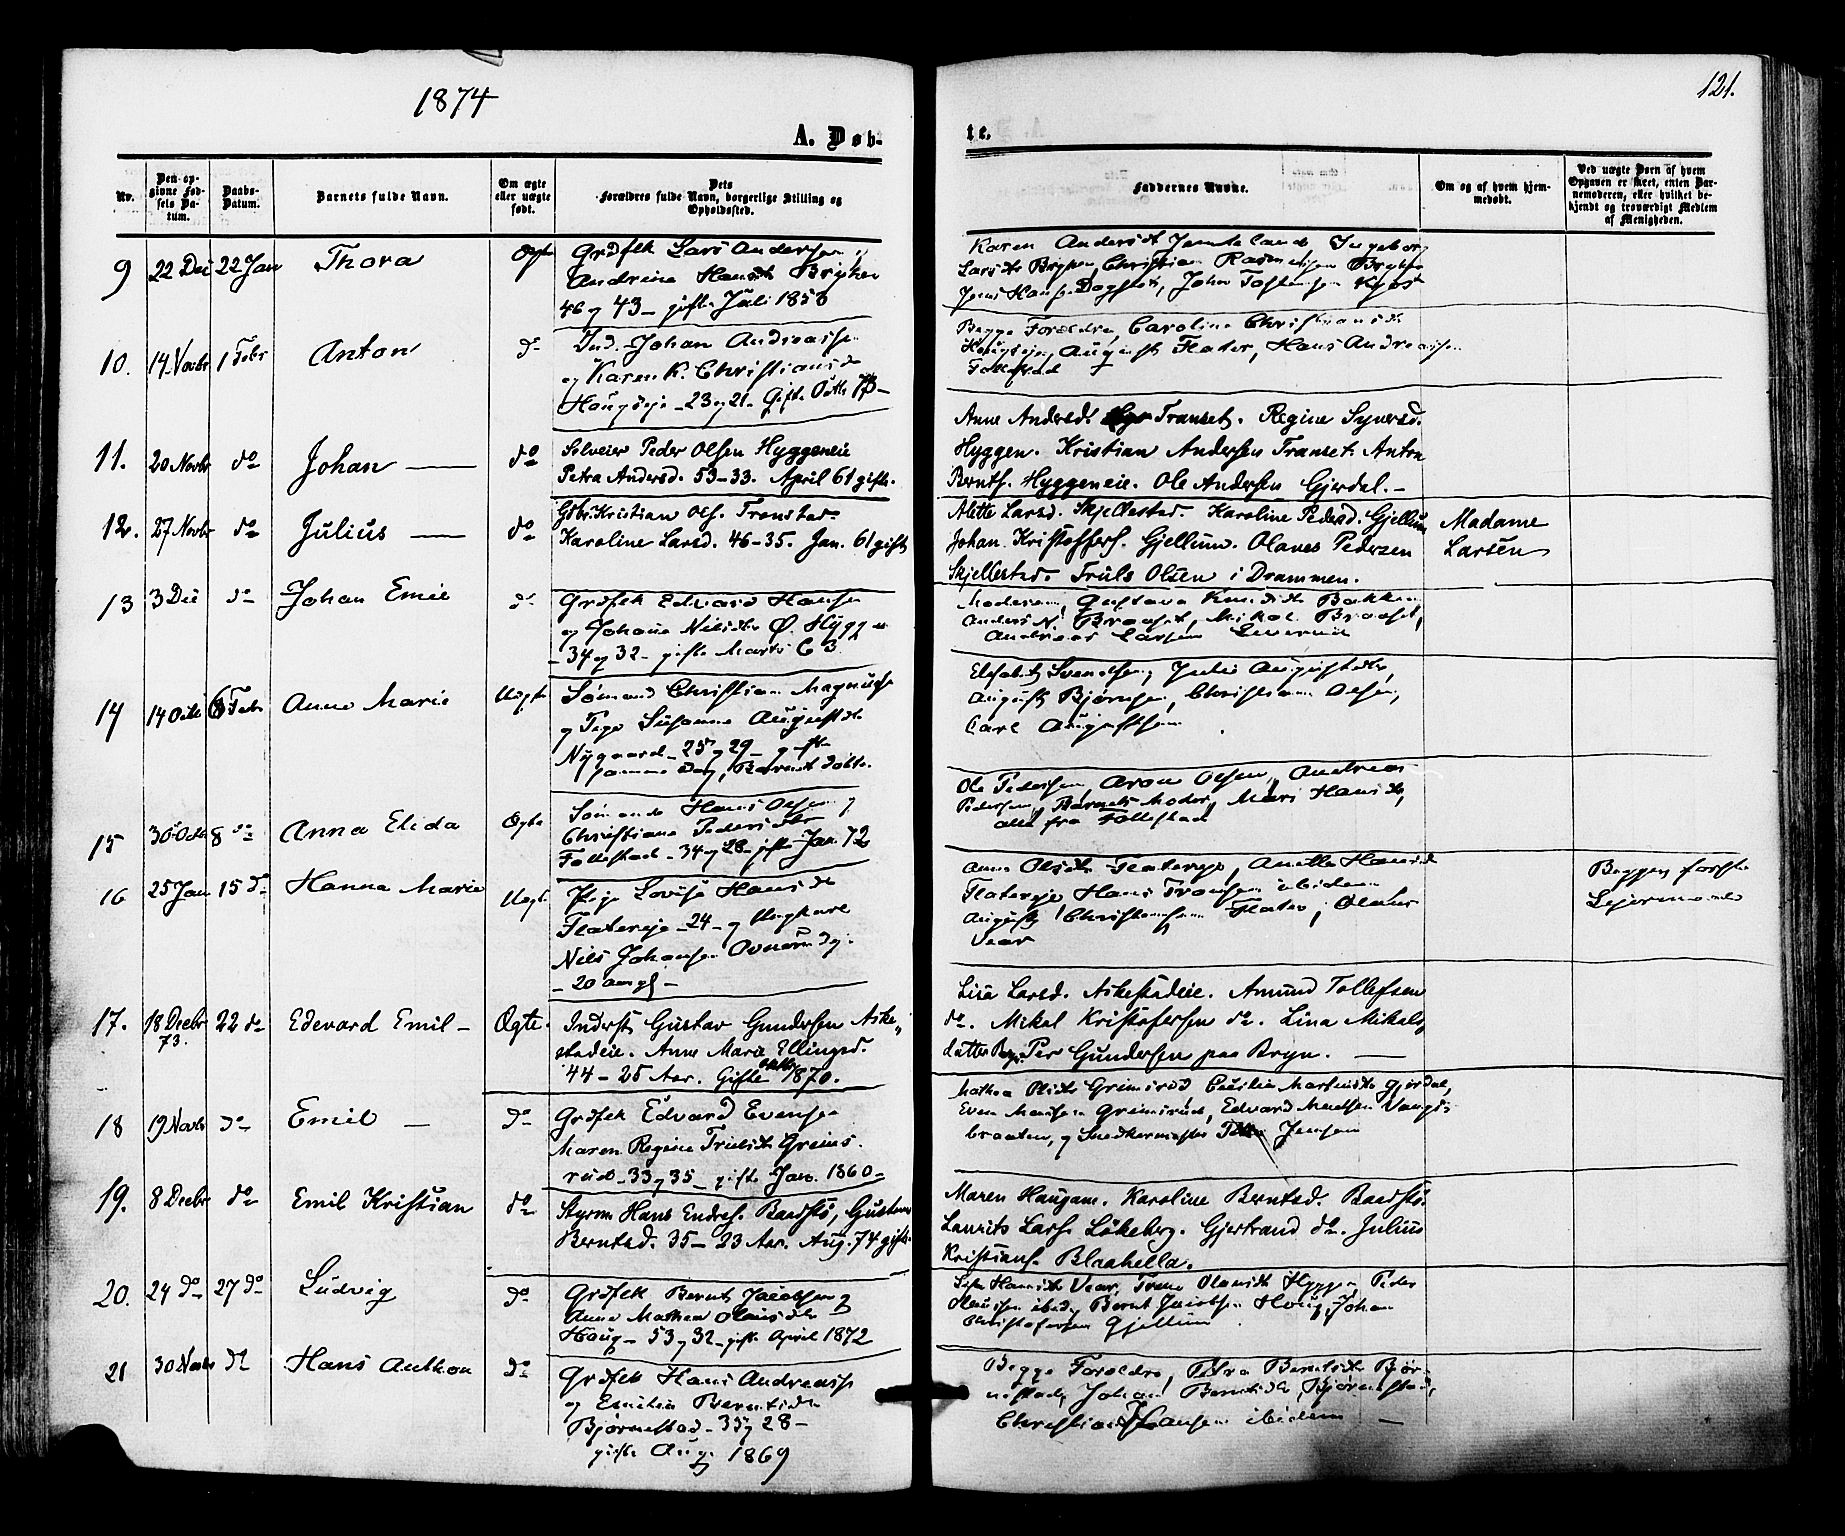 1874
121.
A. Døb-
te.
Nr.
Den op-
givne Fød-
sels Da-
tum.
Daabs-
Datum.
Barnets fulde Navn.
Om ægte
eller uægte
født.
Dets
Forældres fulde Navn, borgerlige Stilling og
Opholdssted.
Faddernes Navne.
Om og af hvem hjem-
medøbt.
Ved uægte Børn af hvem
Opgaven er skeet, enten Bar-
nemoderen, eller hvilket be-
kjendt og troværdigt Medlem
af Menigheden.
9 22 Dec 22 Jan Thora Ægte
Grdfek Lars Andersen og
Andrine Hansdt
46 og 43 - gifte Juli 1858
Karen Andersdt Ingeborg
Larsdt Christian Rasmussen
Jens Hansen John
10. 14 Novbr 1 Febr Anton do
Ind. Johan Andreassen
og Karen K. Christiansd
23 og 21. Gifte Octb. 73 -
Begge Forældre, Caroline Christiansdt
August Flater, Hans Andreassen
11. 20 Novbr do Johan — do
Selveier Peder Olsen Hyggeneie
Petra Andersd. 53-33. April 61 gifte.
Anne Andersdt. Transet. Regine Syversd.
Hyggen. Kristian Andersen Transet. Antra
Berntf. Hyggeneie. Ole Andersen Gjerdal. -
12. 27 Novbr do Julius — do
Gbr. Kristian Olf. Tronstad.
Karoline Larsd. 46-35. Jan. 61 gifte
Alette Larsd. Skjellestad. Karoline Pedersd. Gjellum
Johan Kristofferf. Gjellum. Olaves Pedersen
Skjellestad. Truls Olsen i Drammen.
Madame
Larsen
13 3 Dec do Johan Emil do
Grdfek Edvard Hansen
og Johane Nilsdtr Ø. Hyggen
- 34 og 32 - gifte Marts 63
Moderen, Gustava Knudsdt Bakken
Anders N. Braaset, Mikal Braaset,
Andreas Larsen
14 14 Octb 8 Febr Anne Marie Uægte
Sømand Christian Magnus
og Pige Susanne Augustdt
Nygaard - 25 og 29 - gifte
samme Dag, Barnet døbte.
Elisabet Svendsen, Julie Augustdtr,
August Bjørnsen, Christian Olsen,
Carl Augustsen
15 30 Octb 8 do Anna Elida Ægte
Sømand Hans Olsen og
Christiane Pedersdtr
Follestad - 34 og 28 - gifte Jan. 72
Ole Pedersen, Aron Olsen, Andreas
Pedersen, Barnets Moder, Mari Hansdt,
alle fra Follestad
16 25 Jan 15 do Hanna Marie Uægte
Pige Lovise Hansdt
Flatereje - 24 - og Ungkarl
Nils Johansen
- 20 Aar gl -
Anne Olsdt Flatereje, Anette Hansdt
Flatereje Hans Fransen ibidem
August Christensen Flater, Olaus
Vear
Begges første
Leiermaal
17. 18 Decbr 73. 22 do Edevard Emil - Ægte.
Inderst Gustav Gundersen Aske„
stadeie. Anne Marie Ellingsd.
44 - 25 Aar. Gifte Octb. 1870.
Lisa Larsd. Askestadeie. Amund Tollefsen
do. Mikal Kristofersen do. Lina Mikals
datter Bryn. Per Gundersen paa Bryn. —
18 19 Novbr do Emil — do
Grdfek Edvard Evensen
Maren Regine Trulsdt Grims
rud - 33 og 35 - gifte Jan. 1860 -
Mathea Olsdt Grimsrød Cecilia Martinsdt Gjerdal,
Even Madsen Grimsrud, Edvard Madsen Vangs
braaten, og Snedkermester Jensen
19. 8 Decbr do Emil Kristian do
Styrm. Hans Endref. Baadstø, Gustava
Berntsd. 35 - 23 Aar. Aug. 74 gifte.
Maren Haugam. Karoline Berntsd. Baadstø.
Laurits Larf. Løkeberg. Gjertrand do. Julius
Kristianf. Blaahella.
20. 24 do 27 do Ludvig do
Grdfek Bernt Jacobsen og
Anne Mathea Hansdtr
Haug - 53 og 32 - gifte April 1872
Hansdt Vear, Trine Olausdt Hyggen, Peder
Hansen ibid, Bernt Jacobsen Houg, Johan
Christofersen Gjellum
21 30 Novbr do Hans Anthon do
Grdfek Hans Andreassen
og Emilie Berntsdt
Bjørnestad - 33 og 28 -
gifte Aug. 1869
Begge Forældre, Petra Berntsdtr Bjør-
nestad, Johan Berntsdt, Bjørnestad,
Christian Hansen ibidem —